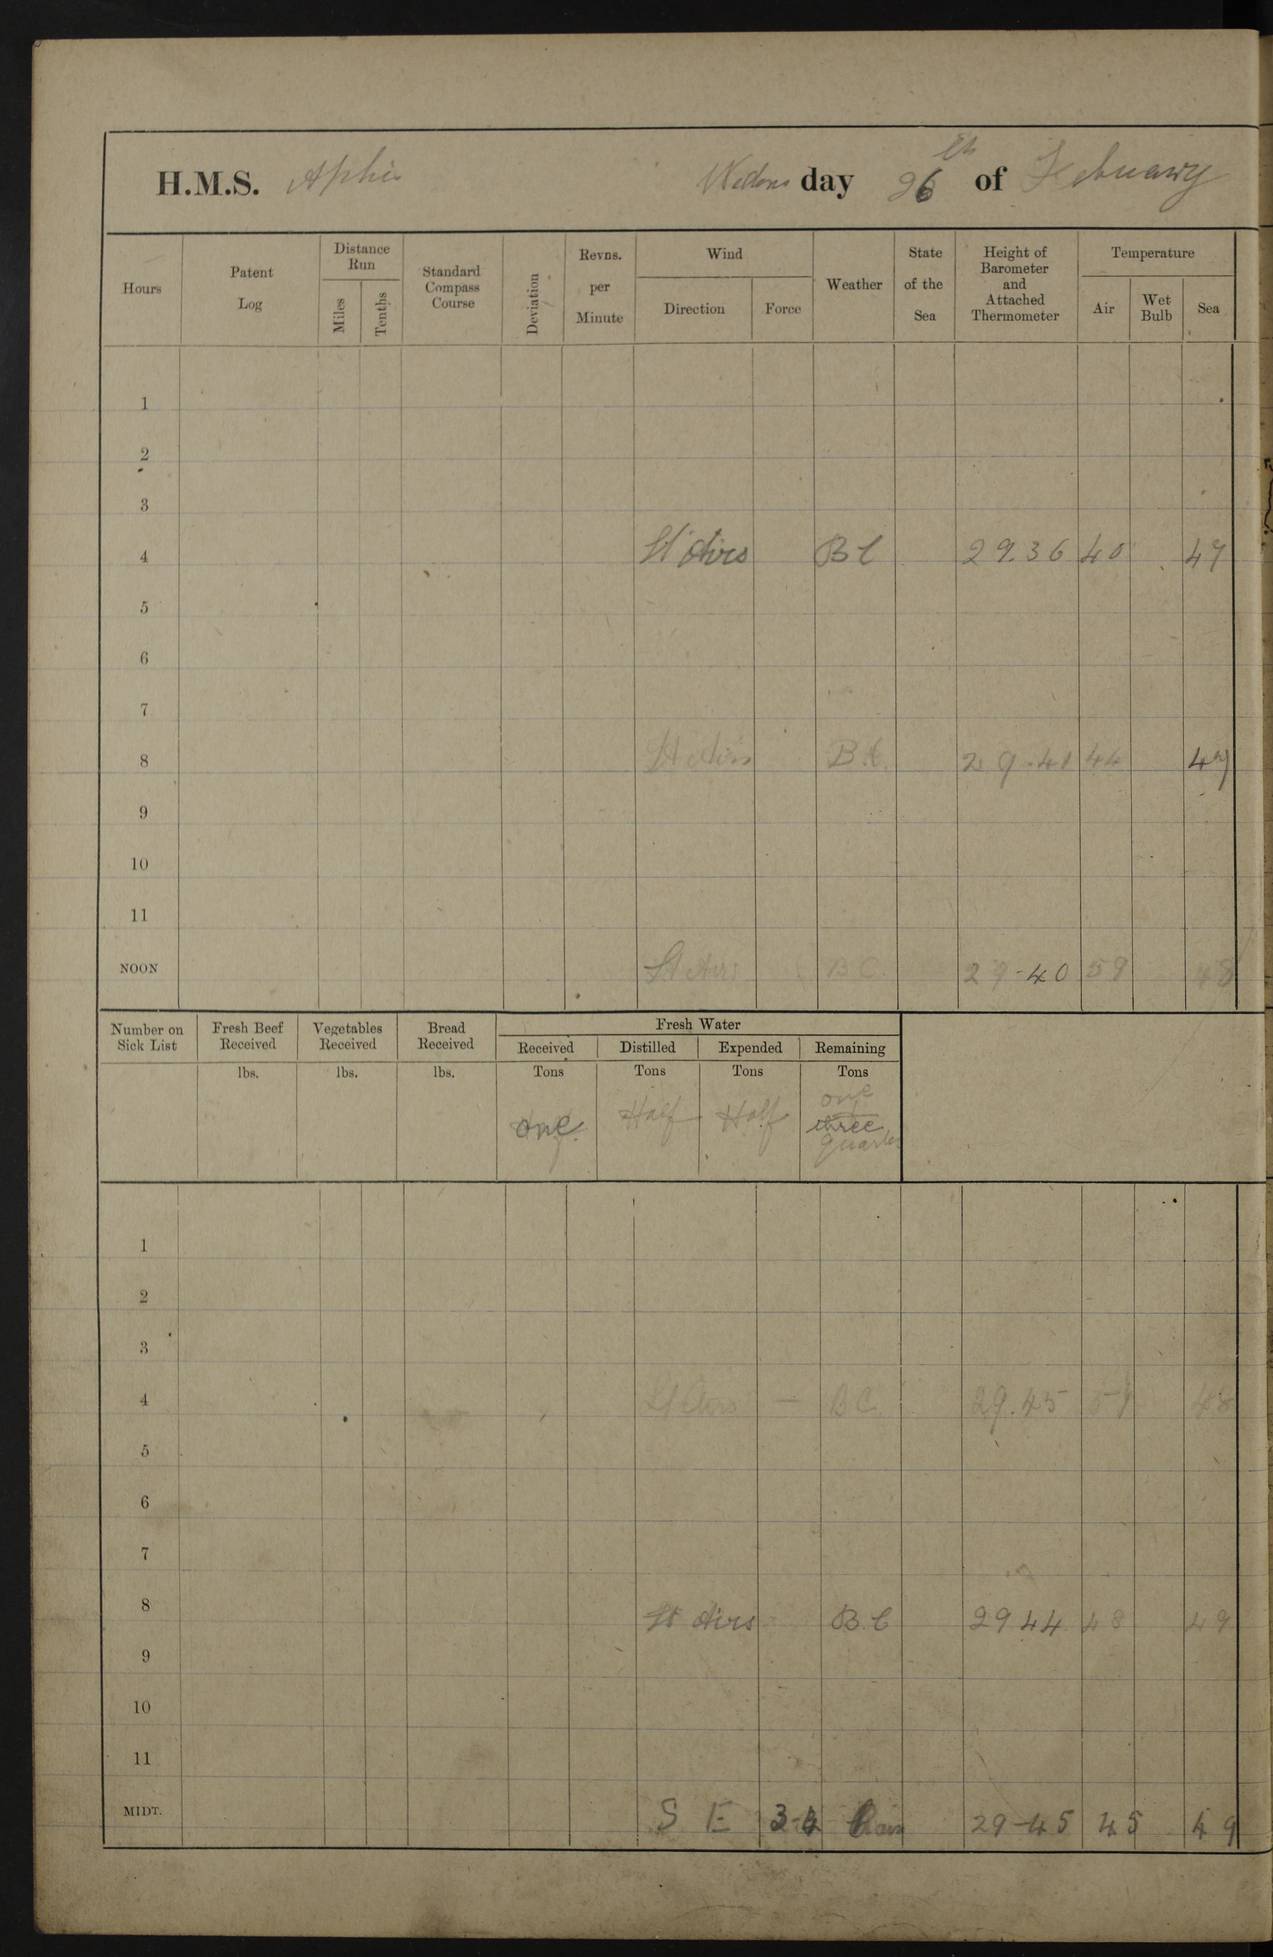 H.M.S. Aphis Wednesday 26th of February
Hours Patent Log Distance Run Miles Tenths Standard Compass Course Deviation Revns. per Minute Wind Direction Force Weather State of the Sea Height of Barometer and Attached Thermometer Temperature Air Wet Bulb Sea
1
2
3
4 Lt Airs BC 29.36 40 47
5
6
7
8 Lt Airs B.C. 29.41 44 47
9
10
11
NOON Lt Airs BC 29-40 59 48
Number on Sick List Fresh Beef Received Vegetables Received Bread Received Fresh Water
Received Distilled Expended Remaining
lbs. lbs. lbs. Tons Tons Tons Tons
one Half Half one three quarter
1
2
3
4 Lt Airs — BC 29.45 48
5
6
7
8 Lt Airs B.C 29 44 48 49
9
10
11
MIDT. S E 3-4 29-45 45 49